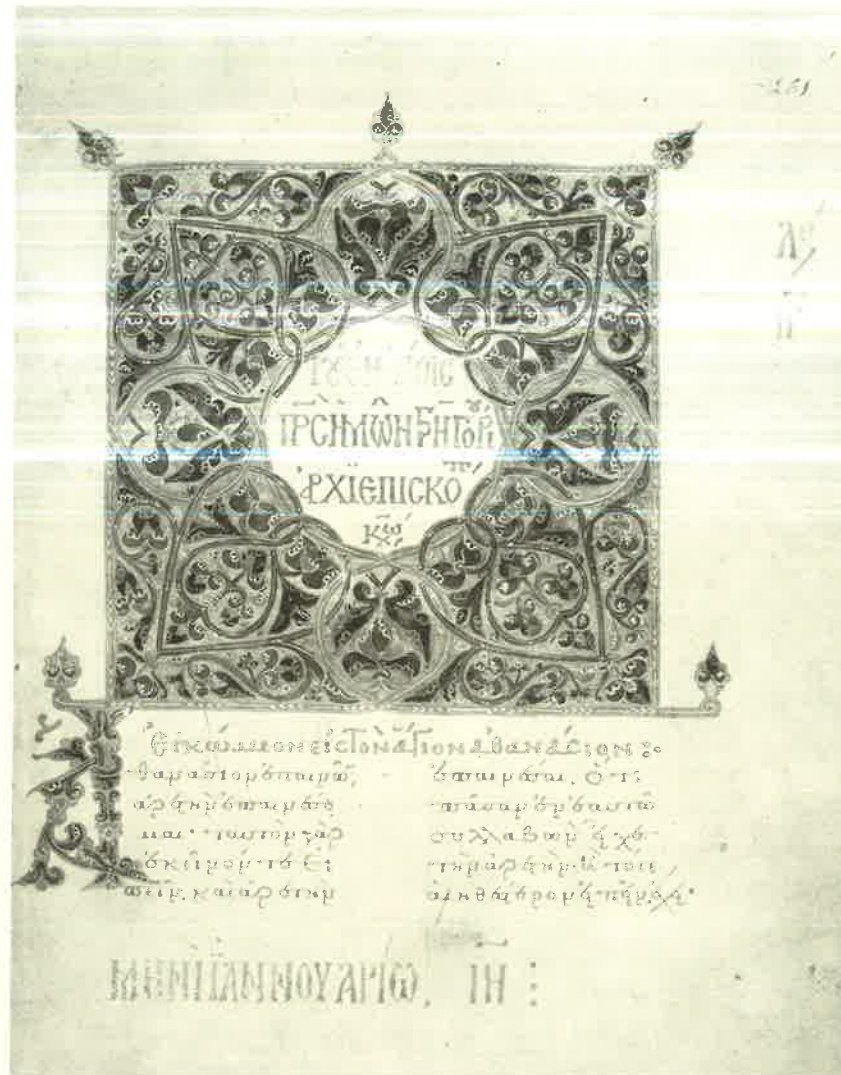 261
ΛϚ
ΤΟΥ ΕΝ ἉΓΙΟΙΣ
ΠΡΣ ΗΜΩΝ ΓΡΗΓΟΡ
ἈΡΧΙΕΠΙΣΚΟΠ
ΚΩ
ἘΓΚΩΜΙΟΝ ΕἰΣ ΤΟΝ ἍΓΙΟΝ ἈΘΑΝΆΣΙΟΝ :
Ἀ
θανάσιον ἐπαινῶ
ἀρετὴν ἐπαινέσο
μαι· ταυτὸν γὰρ
ἐκεῖνόν τε εἰ
πεῖν, καὶ ἀρετὴν
ἐπαινέσαι. Ὅτι
πᾶσαν ἐν ἑαυτῶ
συλλαβὼν εἶχε
τὴν ἀρετήν. ἢ τό γε
ΜΗΝῚ ἸΑΝΝΟΥΑΡΊΩ, ΙΗ :